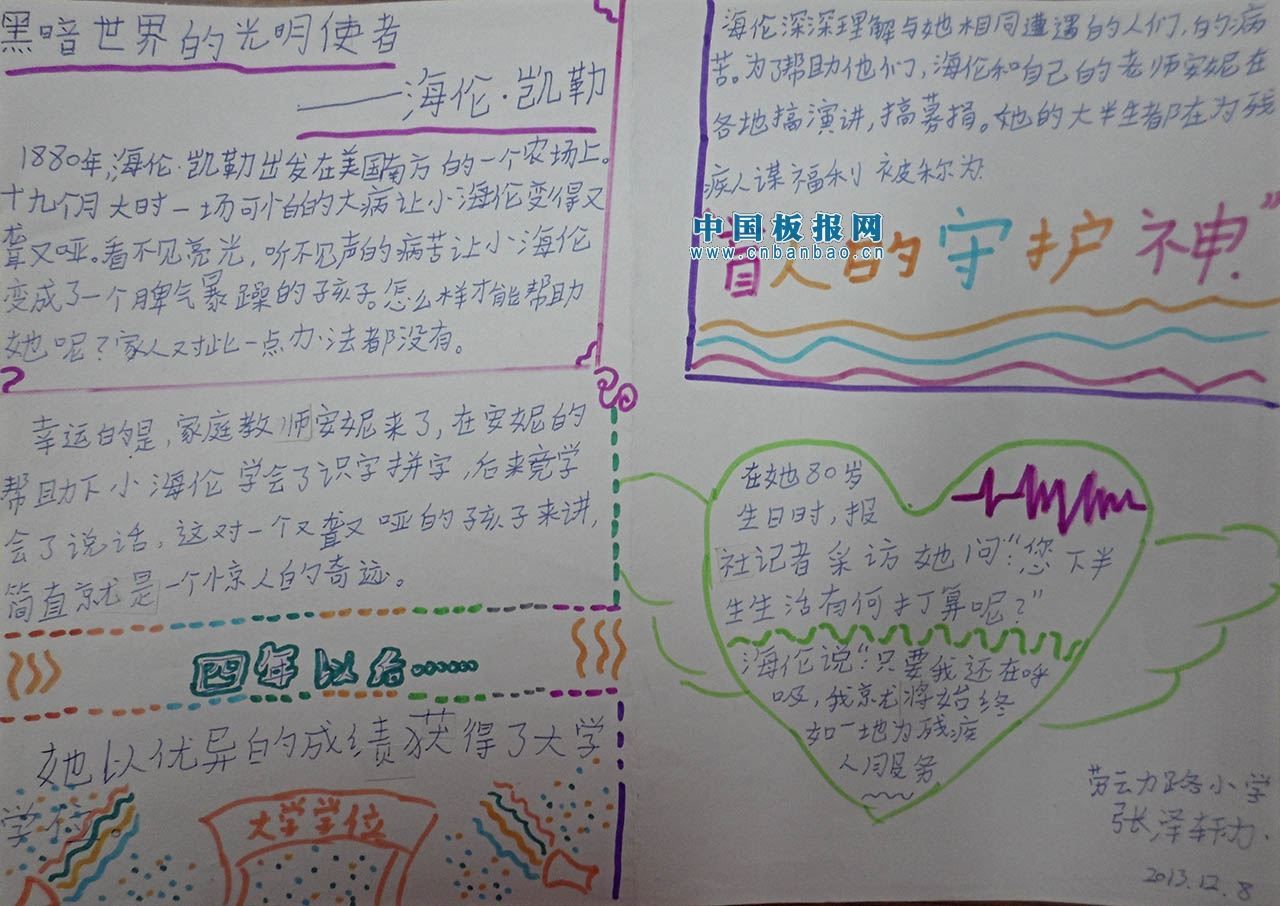 黑暗世界的光明使者
——海伦·凯勒
1880年,海伦·凯勒出发在美国南方的一个农场上。
十九个月大时一场可怕的大病让小海伦变得又
聋又哑。看不见亮光,听不见声的病苦让小海伦
变成了一个脾气暴躁的孩子。怎么样才能帮助
她呢?家人对此一点办法都没有。
幸运的是,家庭教师安妮来了,在安妮的
帮助下小海伦学会了识字拼字,后来竟学
会了说话,这对一个又聋又哑的孩子来讲,
简直就是一个惊人的奇迹。
四年以后……
她以优异的成绩获得了大学
学位。
大学学位
海伦深深理解与她相同遭遇的人们,的病
苦。为了帮助他们,海伦和自己的老师安妮在
各地搞演讲,搞募捐。她的大半生都在为残
疾人谋福利被称为
中国板报网
www.cnbanbao.cn
盲人的守护神”
在她80岁
生日时,报
社记者采访她问“您下半
生生活有何打算呢?”
海伦说“只要我还在呼
吸,我就将始终
如一地为残疾
人服务
劳动路小学
张泽
2013.12.8